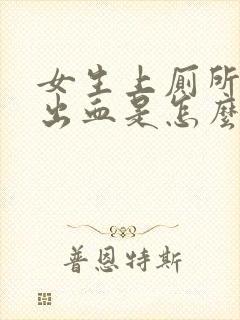 女生上厕所
出血是怎麼
普恩特斯